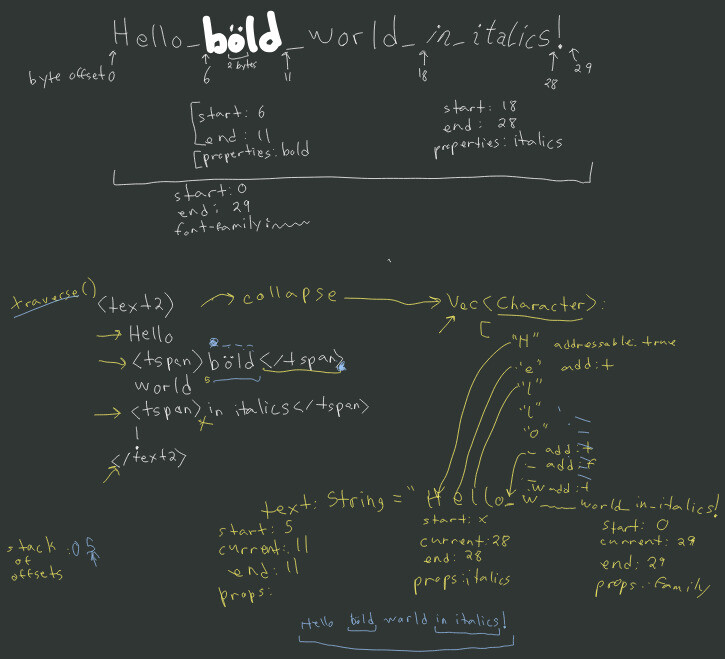 Hello_böld_world_in_italics!
byte offset 0 6 2 bytes 11 18 28 29
start: 6
end: 11
properties: bold
start: 18
end: 28
properties: italics
start: 0
end: 29
font-family:
traverse()
<text2>
collapse
Vec<Character>:
[
Hello
"H" addressable: true
<tspan> böld </tspan>
"e" add: t
5
world
"l"
<tspan> in italics</tspan>
x
"l"
"o"
!
_ add: t
</text2>
_ add: f
_ w add: t
text: String = "Hello_w world_in_italics!
start: 5
current: 11
end: 11
props:
start: x
current: 28
end: 28
props: italics
start: 0
current: 29
end: 29
props: family
stack of offsets : 0 5
Hello böld world in italics!